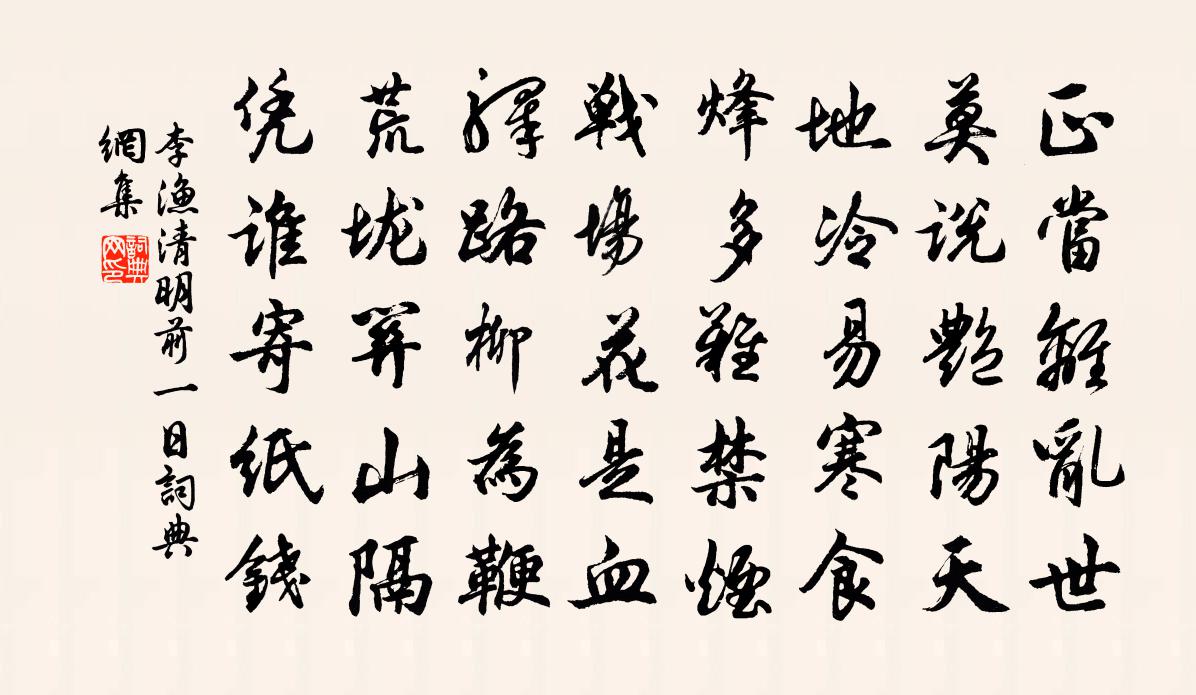 正當離亂世
莫説艶陽天
地冷易寒食
烽多難禁煙
戰場花是血
驛路柳為鞭
荒垅關山隔
凭誰寄紙錢
李漁清明前一日詞典
網集
詞典网印